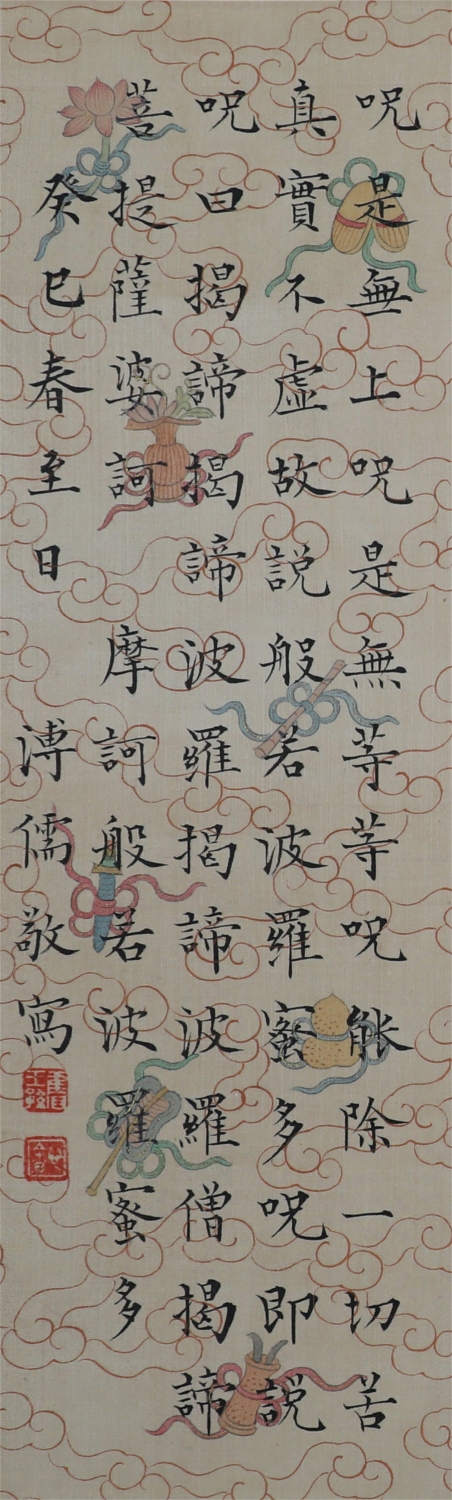 呪是無上呪是無等等呪能除一切苦
真實不虛故説般若波羅蜜多呪即説
呪曰揭諦揭諦波羅揭諦波羅僧揭諦
菩提薩婆訶　摩訶般若波羅蜜多
癸巳春至日　溥儒敬寫